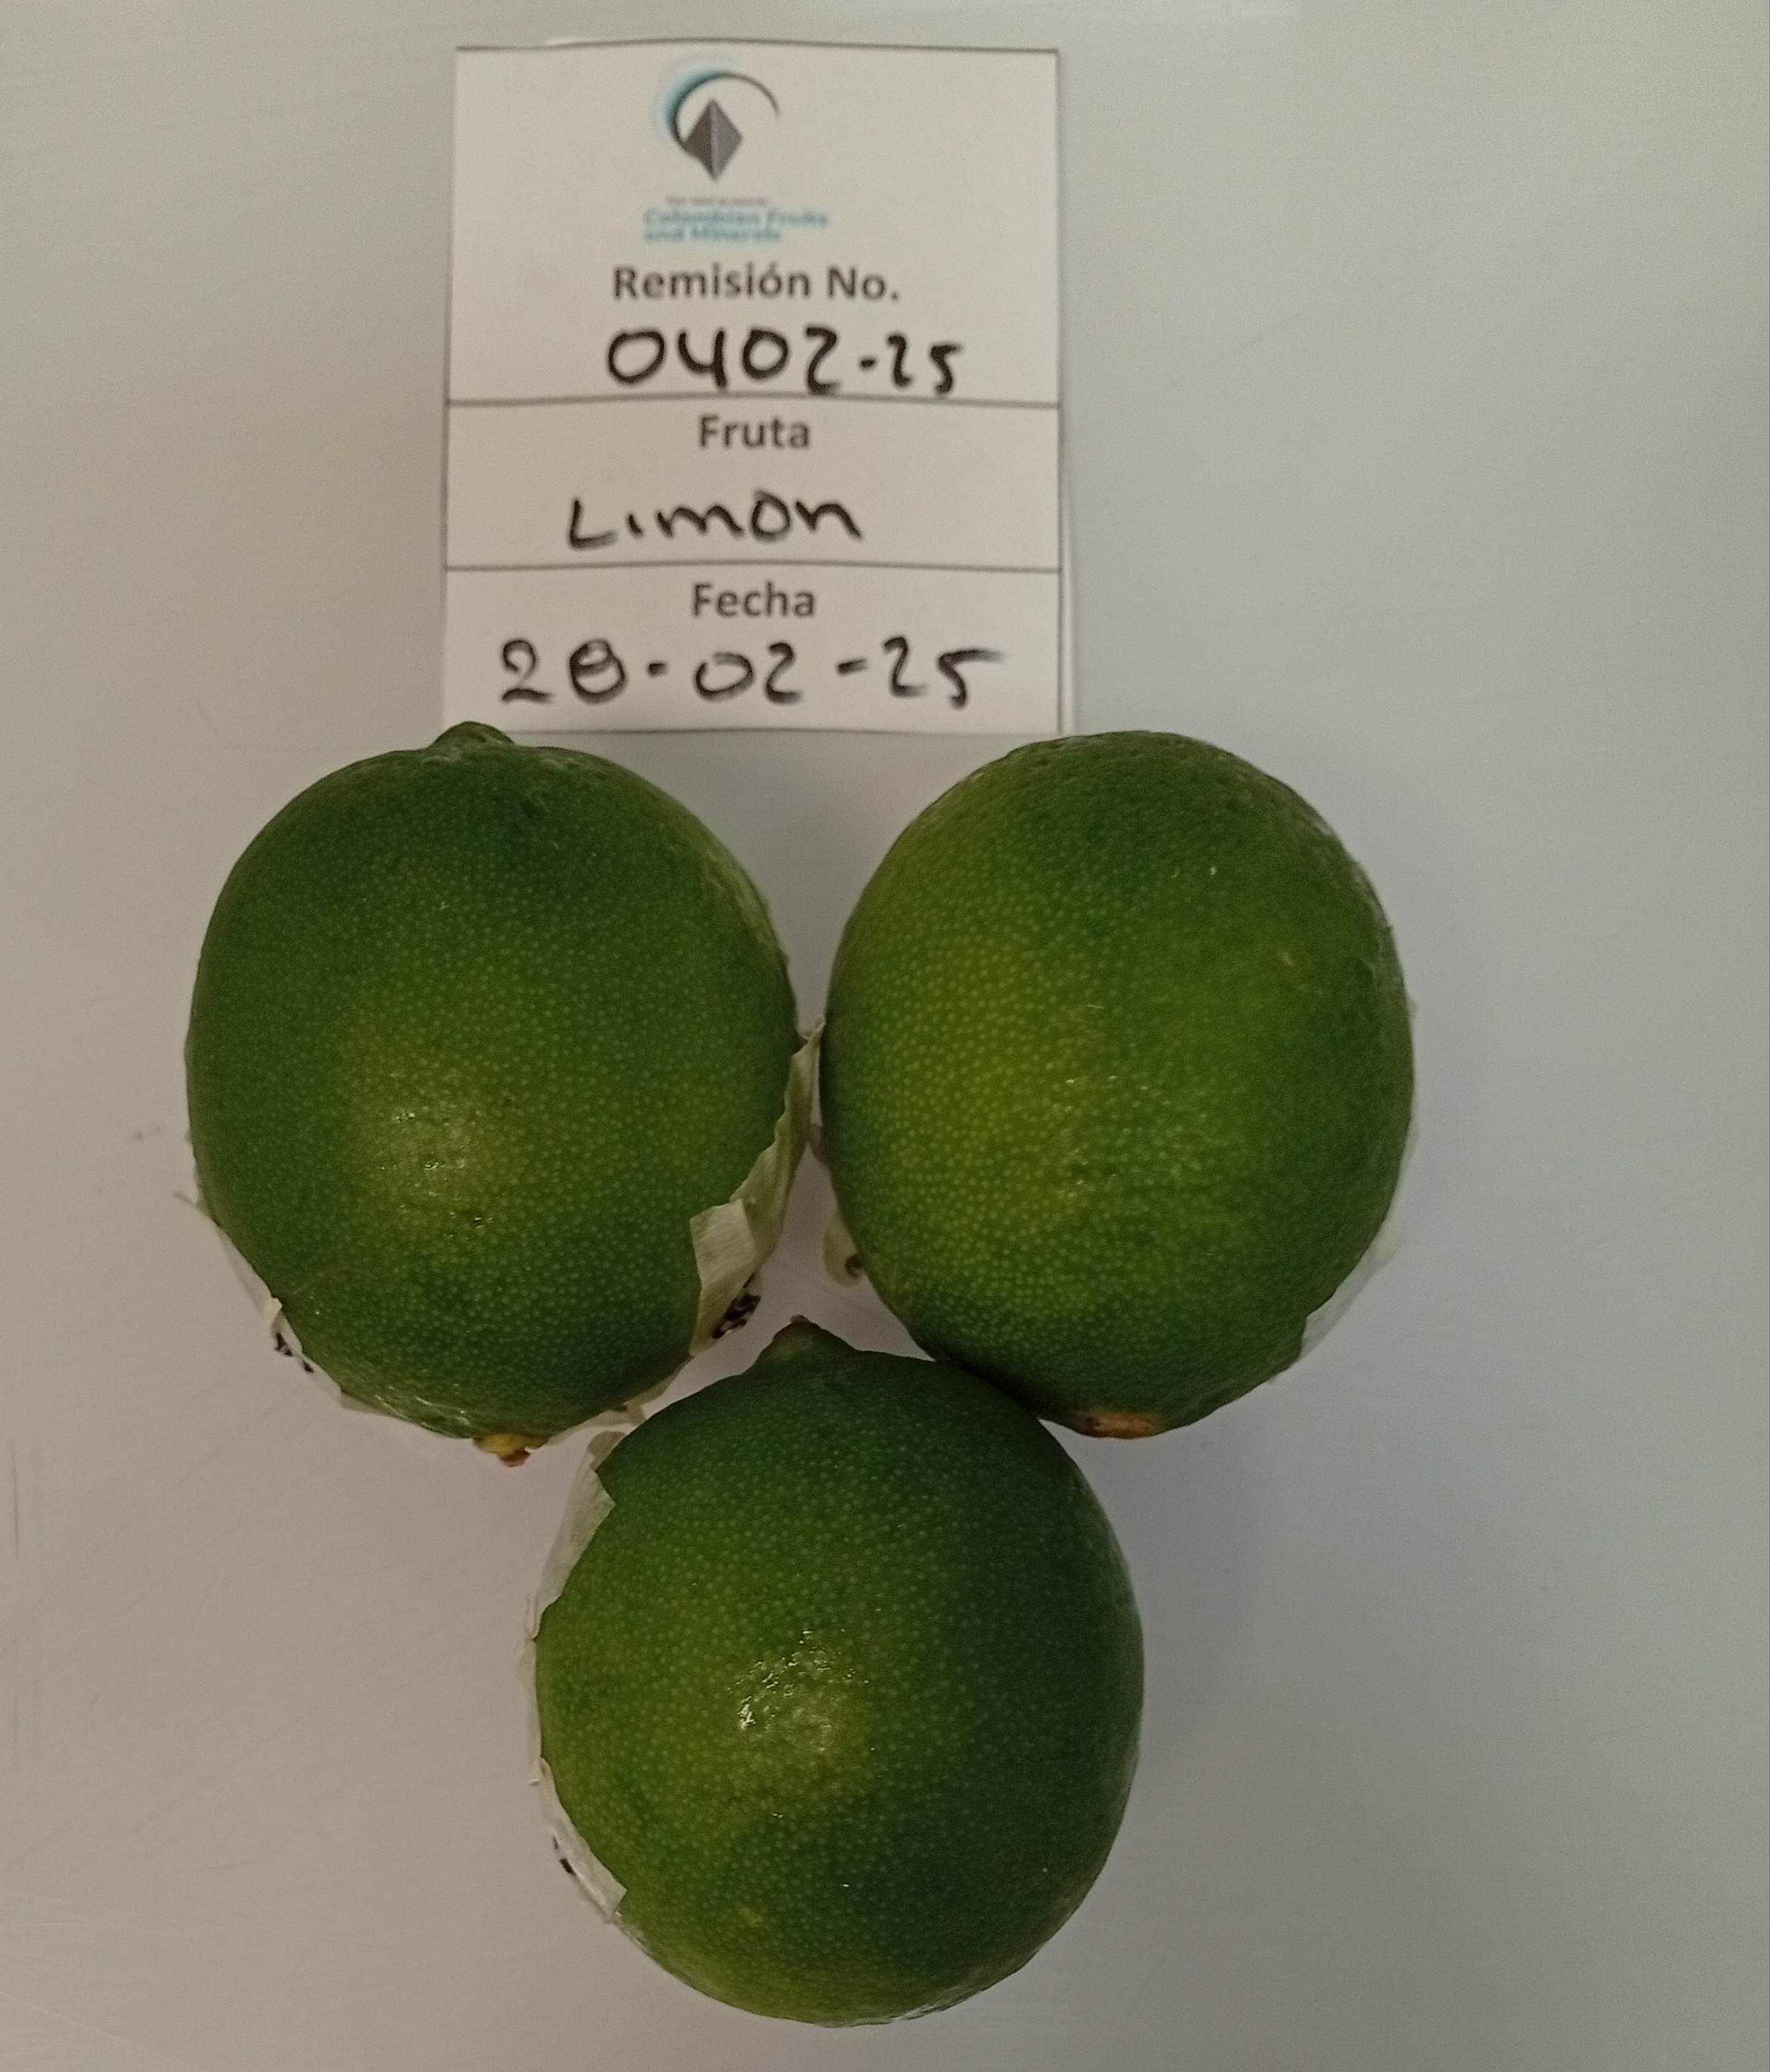 Colombian Fruits
and Minerals
Remisión No.
0402-25
Fruta
Limon
Fecha
28-02-25